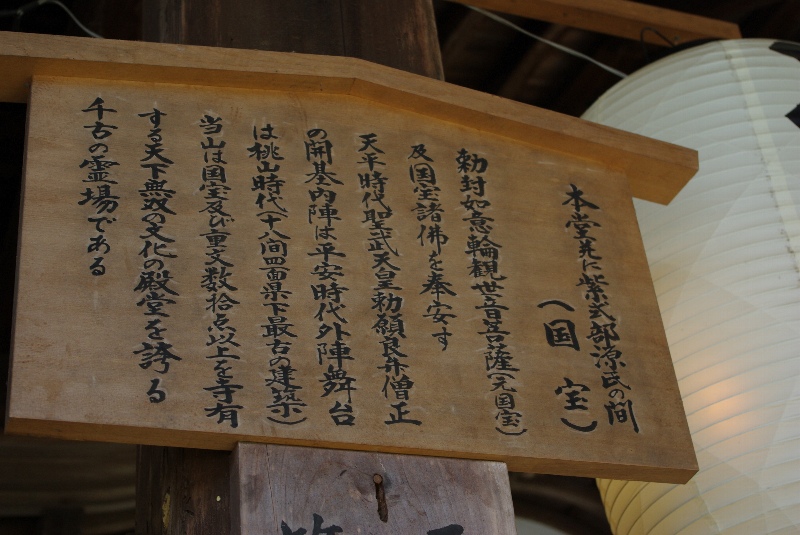 本堂並に紫式部源氏の間
（国宝）
勅封如意輪観世音菩薩（元国宝）
及国宝諸佛を奉安す
天平時代聖武天皇勅願良弁僧正
の開基内陣は平安時代外陣舞台
は桃山時代（十八間四面県下最古の建築）
当山は国宝及び重文数拾点以上を寺有
する天下無双の文化の殿堂を誇る
千古の霊場である